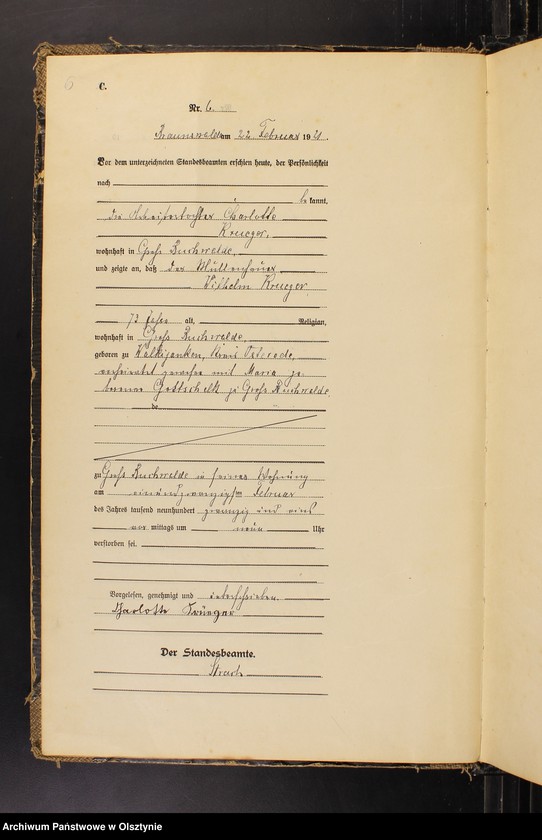 6
C.
Nr. 6.
Braunswalde am 22. Februar 1921.
Vor dem unterzeichneten Standesbeamten erschien heute, der Persönlichkeit
nach
be kannt,
die Arbeitertochter Charlotte
Krueger,
wohnhaft in Groß Buchwalde,
und zeigte an, daß der
Wilhelm Krueger,
73 Jahre alt, Religion,
wohnhaft in Groß Buchwalde,
geboren zu Kreis Osterode,
verheiratet gewesen mit Maria ge
borene Gottschalk zu Groß Buchwalde
de
zu Groß Buchwalde in seiner Wohnung
am einundzwanzigsten Februar
des Jahres tausend neunhundert zwanzig und eins
vor mittags um neun Uhr
verstorben sei.
Vorgelesen, genehmigt und unterschrieben.
Charlotte Krueger
Der Standesbeamte.
Archiwum Państwowe w Olsztynie